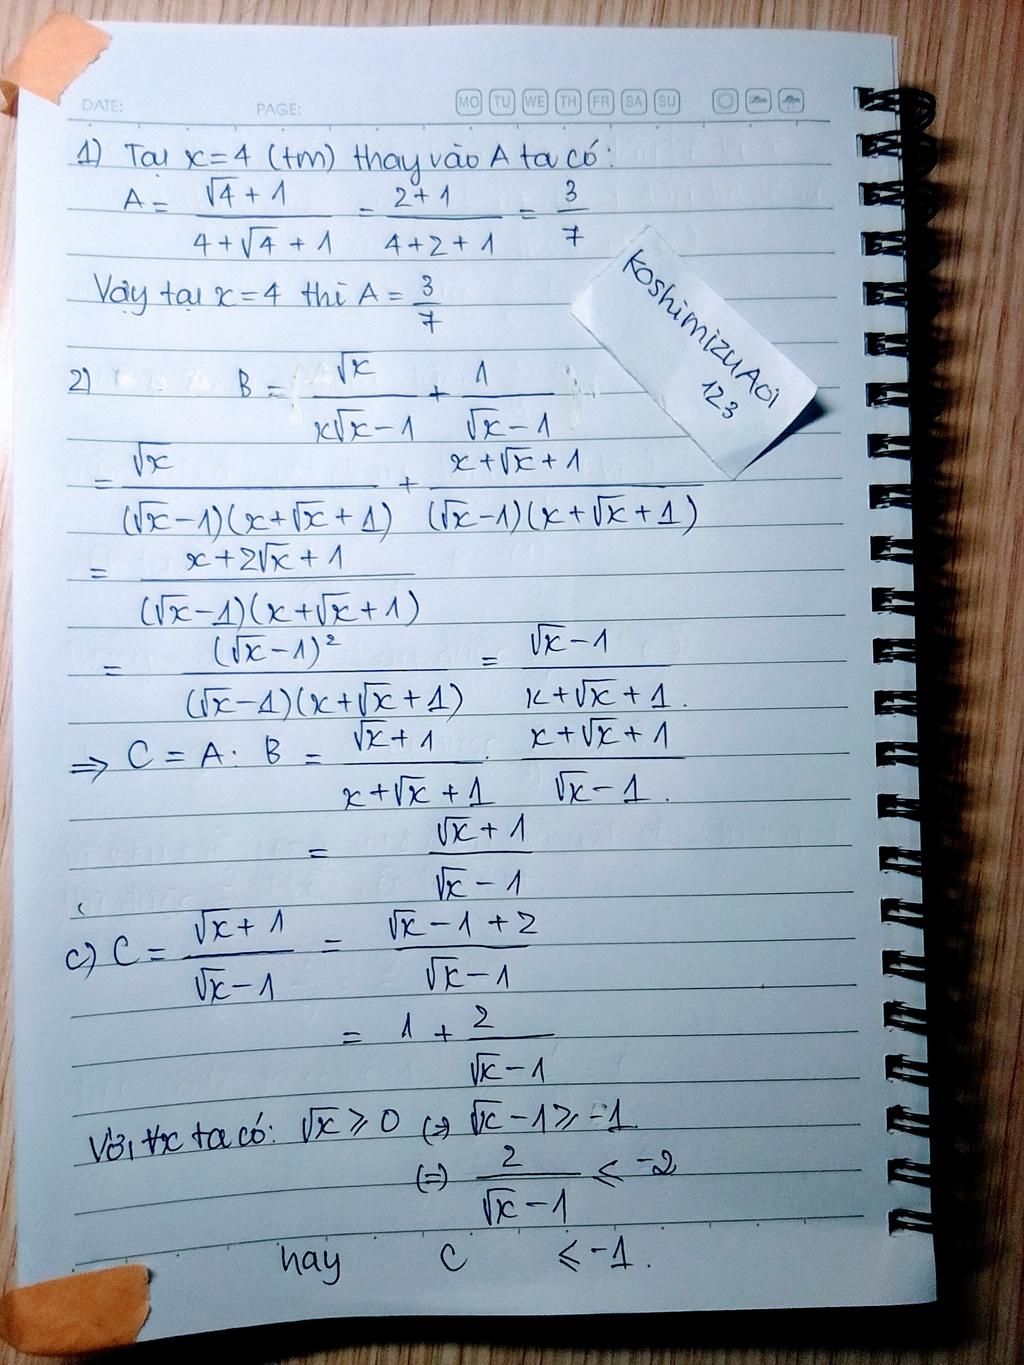 DATE: PAGE: MO TU WE TH FR SA SU
1) Tại x=4 (tm) thay vào A ta có:
A = (√4 + 1)/(4+√4 + 1) = (2+1)/(4+2+1) = 3/7
KoshimizuAoi
123
Vậy tại x=4 thì A = 3/7
2) B = √x/(x√x-1) + 1/(√x-1)
= √x/((√x-1)(x+√x+1)) + (x+√x+1)/((√x-1)(x+√x+1))
= (x+2√x+1)/((√x-1)(x+√x+1))
= (√x-1)²/((√x-1)(x+√x+1)) = (√x-1)/(x+√x+1).
⇒ C = A : B = (√x+1)/(x+√x+1) . (x+√x+1)/(√x-1).
= (√x+1)/(√x-1)
c) C = (√x+1)/(√x-1) = (√x-1+2)/(√x-1)
= 1 + 2/(√x-1)
Với ∀x ta có: √x ≥ 0 (=) √x-1 ≥ -1
(=) 2/(√x-1) ≤ -2
hay C ≤ -1.